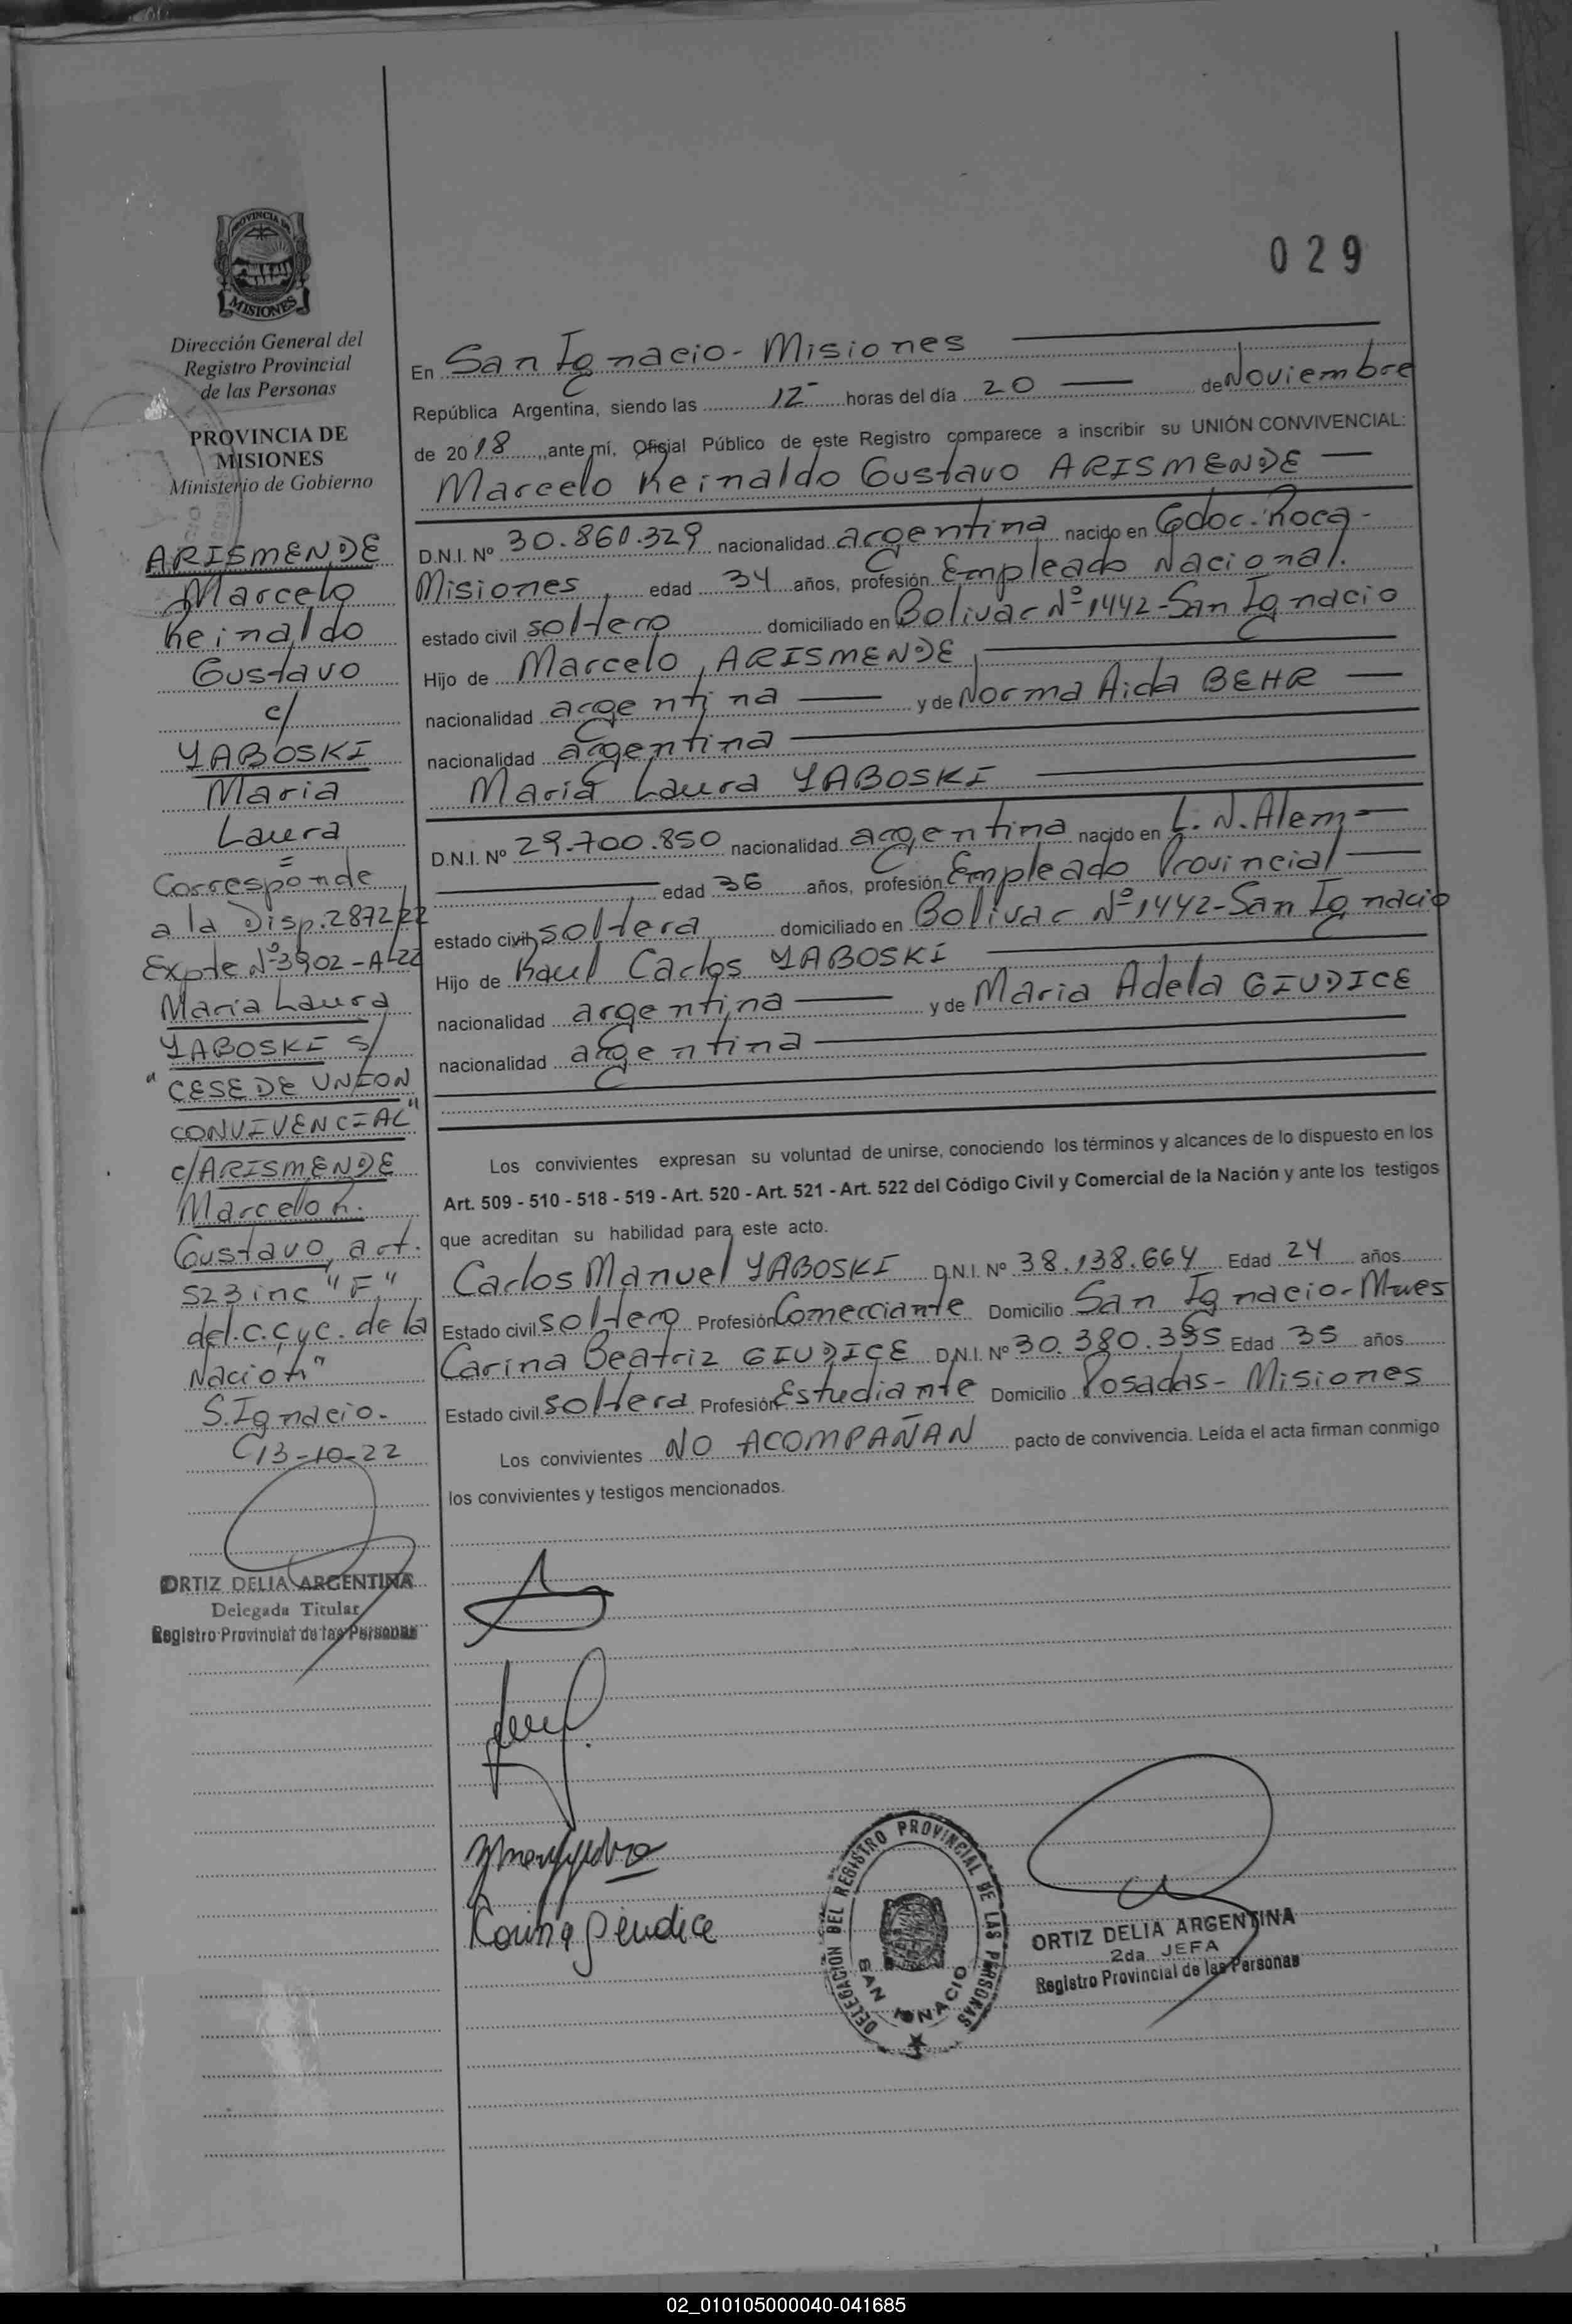 029
PROVINCIA DE
MISIONES
Dirección General del
Registro Provincial
de las Personas
PROVINCIA DE
MISIONES
Ministerio de Gobierno
ARISMENDE
Marcelo
Reinaldo
Gustavo
c/
YABOSKI
Maria
Laura
=
Corresponde
a la Disp. 2872/22
Expte Nº 3902-A-22
Maria Laura
YABOSKI S/
"CESE DE UNION
CONVIVENCIAL"
c/ARISMENDE
Marcelo R.
Gustavo, art.
523 inc "F"
del.C.C.yC. de la
Nacion"
S. Ignacio.
13-10-22
ORTIZ DELIA ARGENTINA
Delegada Titular
Registro Provincial de las Personas
En San Ignacio - Misiones
República Argentina, siendo las 12 horas del día 20 de Noviembre
de 2018, ante mí, Oficial Público de este Registro comparece a inscribir su UNIÓN CONVIVENCIAL:
Marcelo Reinaldo Gustavo ARISMENDE
D.N.I. Nº 30.860.329 nacionalidad argentina nacido en Gdoc. Roca-
Misiones, edad 34 años, profesión Empleado Nacional.
estado civil soltero domiciliado en Bolivar Nº 1442-San Ignacio
Hijo de Marcelo, ARISMENDE,
nacionalidad argentina y de Norma Aida BEHR
nacionalidad argentina
Maria Laura YABOSKI
D.N.I. Nº 29.700.850 nacionalidad argentina nacido en L. N. Alem-
edad 36 años, profesión Empleado Provincial
estado civil soltera domiciliado en Bolivar Nº 1442-San Ignacio
Hijo de Raul Carlos YABOSKI
nacionalidad argentina y de Maria Adela GIUDICE
nacionalidad argentina
Los convivientes expresan su voluntad de unirse, conociendo los términos y alcances de lo dispuesto en los
Art. 509 - 510 - 518 - 519 - Art. 520 - Art. 521 - Art. 522 del Código Civil y Comercial de la Nación y ante los testigos
que acreditan su habilidad para este acto.
Carlos Manuel YABOSKI D.N.I. Nº 38.138.664 Edad 24 años
Estado civil soltero Profesión Comerciante Domicilio San Ignacio-Mnes
Carina Beatriz GIUDICE D.N.I. Nº 30.380.335 Edad 35 años
Estado civil soltera Profesión Estudiante Domicilio Posadas - Misiones
Los convivientes NO ACOMPAÑAN pacto de convivencia. Leída el acta firman conmigo
los convivientes y testigos mencionados.
DELEGACION DEL REGISTRO PROVINCIAL DE LAS PERSONAS
SAN IGNACIO
ORTIZ DELIA ARGENTINA
2da. JEFA
Registro Provincial de las Personas
02_010105000040-041685